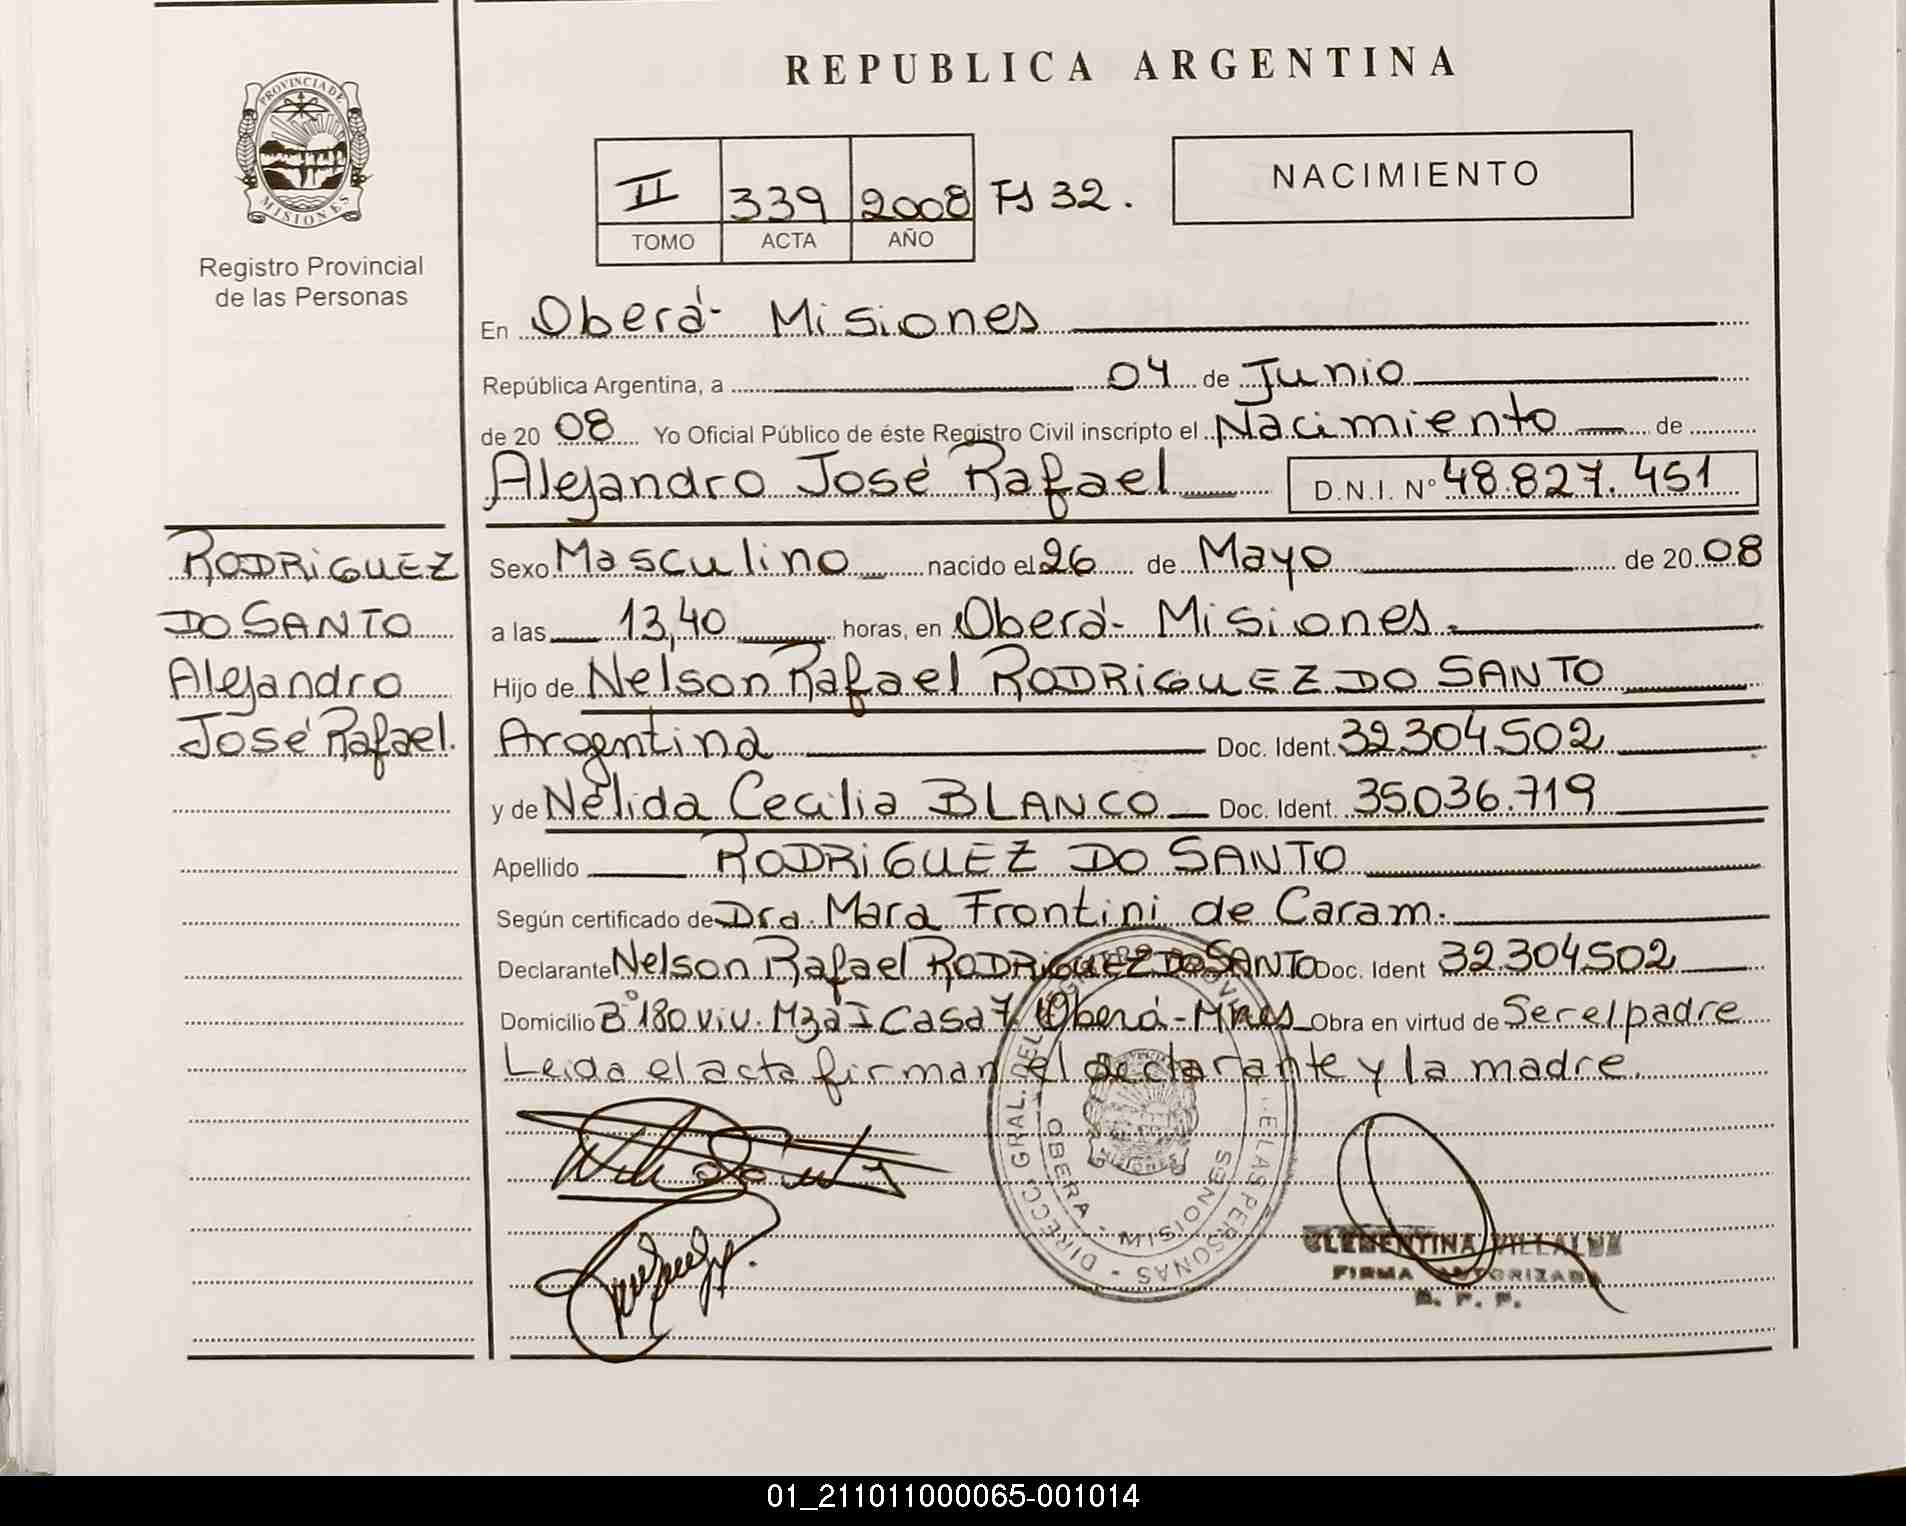 REPUBLICA ARGENTINA
PROVINCIA DE
MISIONES
Registro Provincial
de las Personas
II 339 2008 Fs 32.
TOMO ACTA AÑO
NACIMIENTO
En Oberá- Misiones
República Argentina, a 04 de Junio
de 20 08 Yo Oficial Público de éste Registro Civil inscripto el Nacimiento de
Alejandro José Rafael D.N.I. Nº 48.827.451
RODRIGUEZ
DO SANTO
Alejandro
José Rafael.
Sexo Masculino nacido el 26 de Mayo de 20 08
a las 13,40 horas, en Oberá- Misiones.
Hijo de Nelson Rafael RODRIGUEZ DO SANTO
Argentina Doc. Ident. 32.304.502
y de Nélida Cecilia BLANCO Doc. Ident. 35.036.719
Apellido RODRIGUEZ DO SANTO
Según certificado de Dra. Mara Frontini de Caram.
Declarante Nelson Rafael RODRIGUEZ DO SANTO Doc. Ident 32.304502
Domicilio Bº 180 viv. Mza I Casa 7 Oberá-Mnes Obra en virtud de Ser el padre
Leida el acta firman el declarante y la madre.
DIRECC. GRAL. DEL REGISTRO PROV. DE LAS PERSONAS
OBERA - MISIONES
MISIONES
CLEMENTINA VILLALBA
FIRMA AUTORIZADA
R. P. P.
01_211011000065-001014